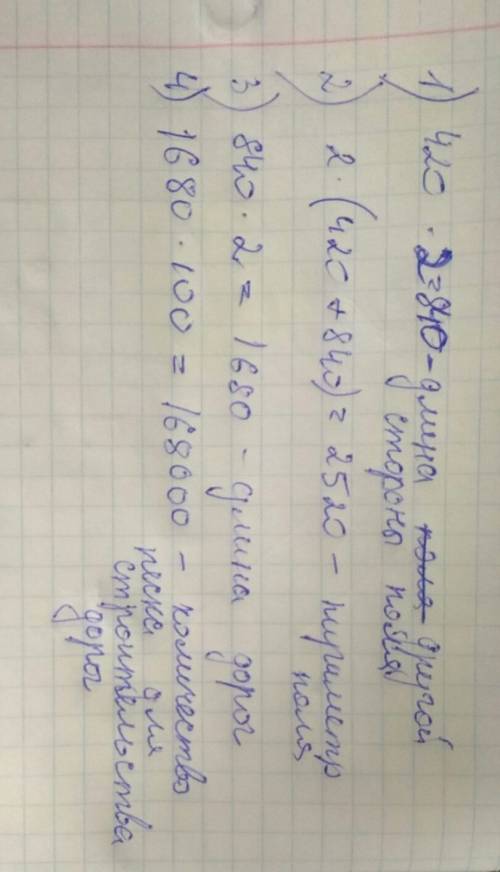 1) 420 · 2 = 840 - длина поля другой
стороны поля
2) 2 · (420 + 840) = 2520 - периметр
поля
3) 840 · 2 = 1680 - длина дорог
4) 1680 · 100 = 168000 - количество
песка для
строительства
дорог